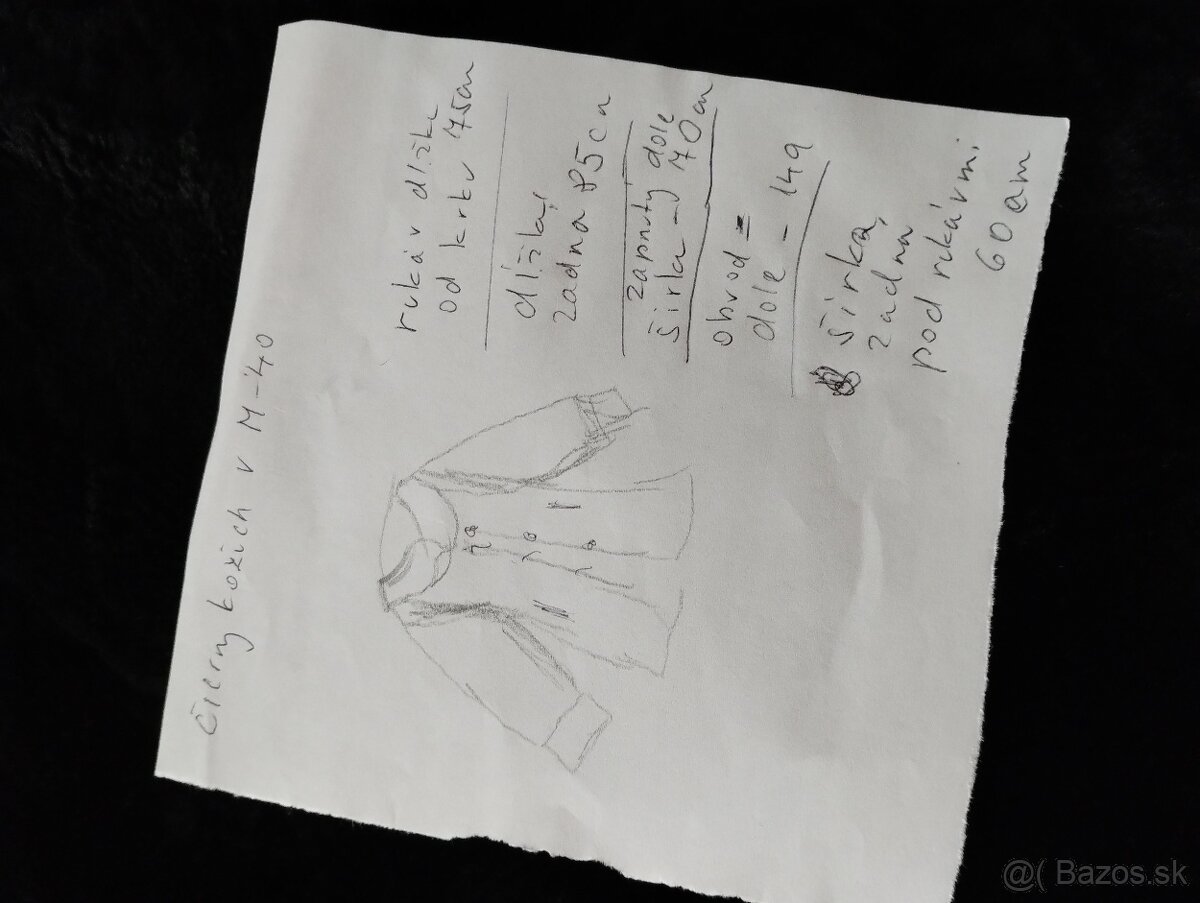 Čierny kožich v M-40
rukáv dlžke
od krku 75cm
dĺžka,
zadna 85cm
zapnutý dole
širka - 70cm
obvod =
dole - 149
širka,
zadna
pod rukávmi
60am
@( Bazos.sk